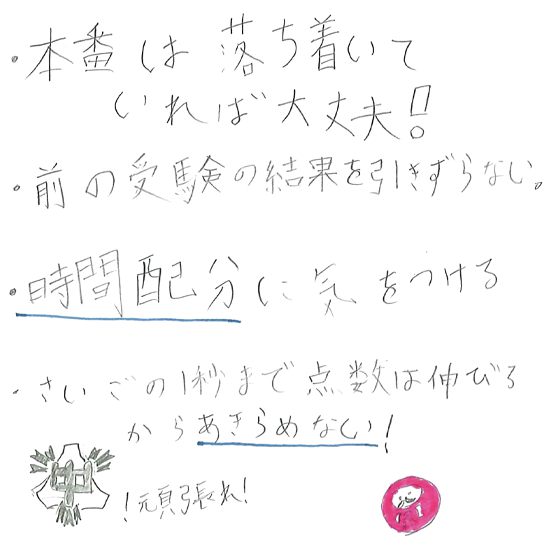 ・本番は落ち着いて
いれば大丈夫！
・前の受験の結果を引きずらない。
・時間配分に気をつける
・さいごの1秒まで点数は伸びる
からあきらめない！
中
！頑張れ！